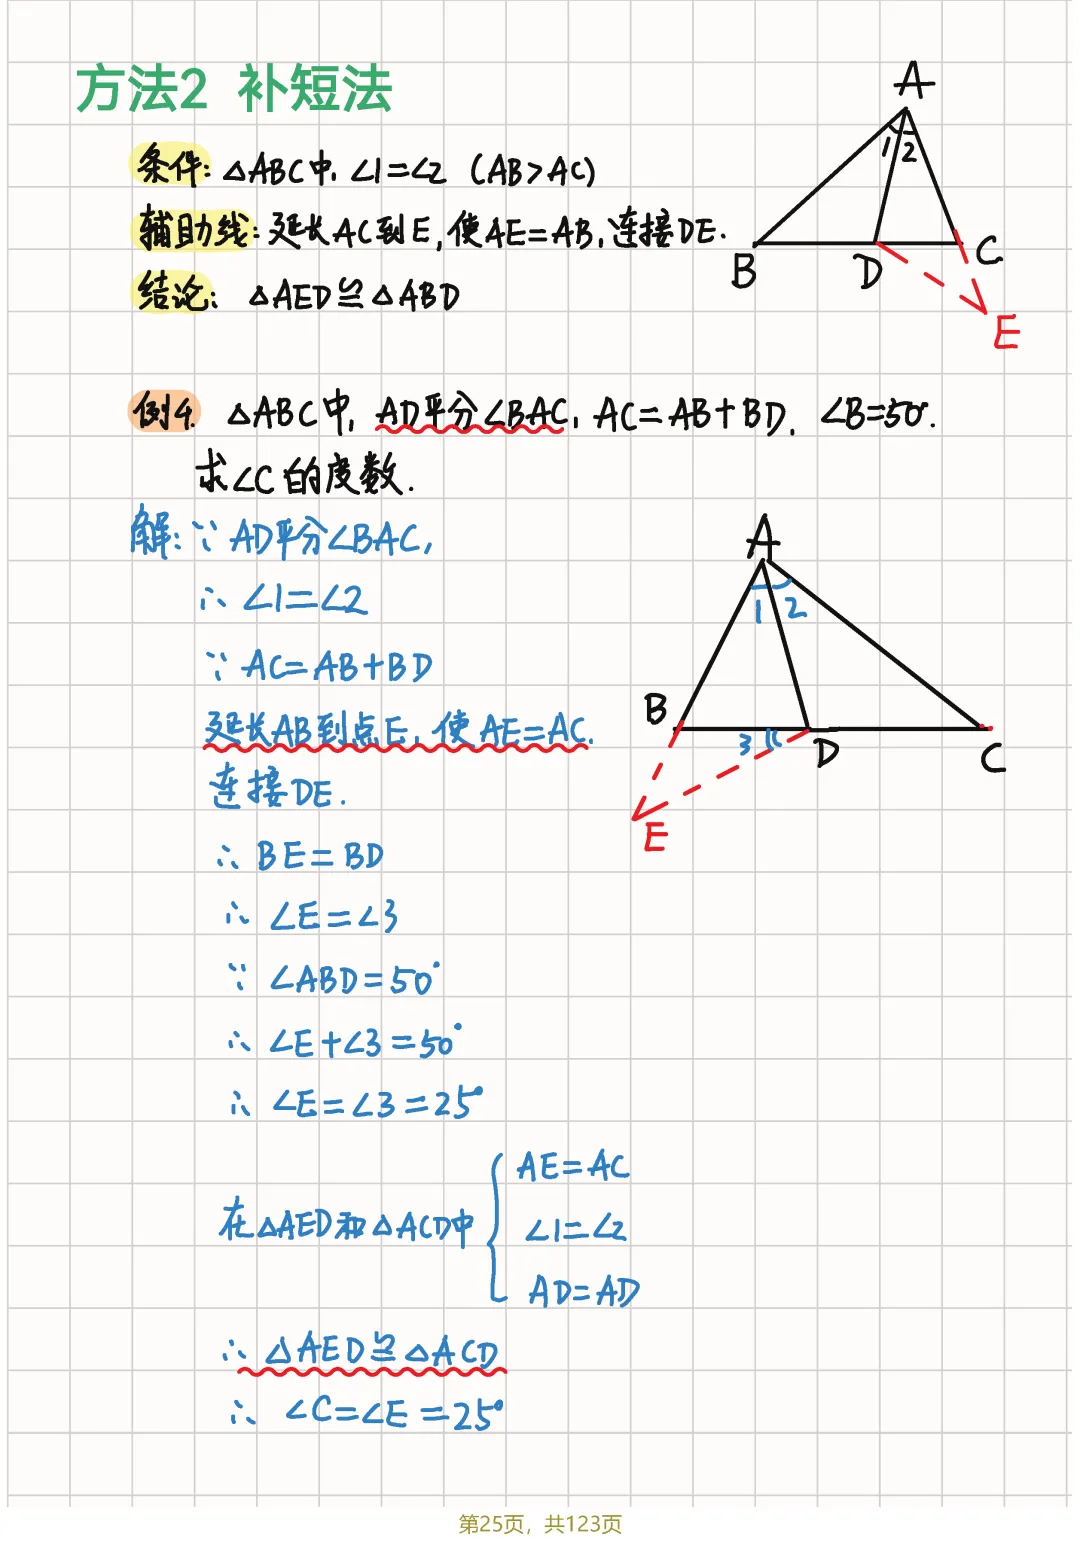 方法2 补短法
条件: △ABC中, ∠1=∠2 (AB>AC)
辅助线: 延长AC到E, 使AE=AB, 连接DE.
结论: △AED≌△ABD
A
1 2
B D C
E
例4. △ABC中, AD平分∠BAC, AC=AB+BD, ∠B=50°.
求∠C的度数.
解: ∵ AD平分∠BAC,
∴ ∠1=∠2
∵ AC=AB+BD
延长AB到点E, 使AE=AC.
连接DE.
∴ BE=BD
∴ ∠E=∠3
∵ ∠ABD=50°
∴ ∠E+∠3=50°
∴ ∠E=∠3=25°
在△AED和△ACD中
AE=AC
∠1=∠2
AD=AD
∴ △AED≌△ACD
∴ ∠C=∠E=25°
A
1 2
B
3 D C
E
第25页，共123页